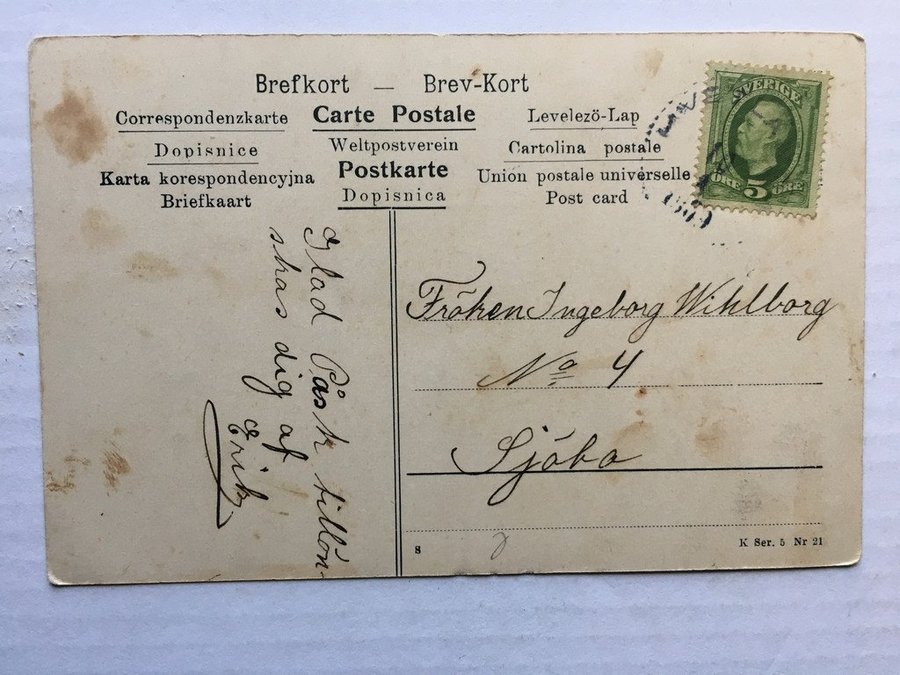 Brefkort — Brev-Kort
Correspondenzkarte Carte Postale Levelezö-Lap
Dopisnice Weltpostverein Cartolina postale
Karta korespondencyjna Postkarte Unión postale universelle
Briefkaart Dopisnica Post card
SVERIGE
ÖRE 5 ÖRE
Glad Påsk tillön-
skas dig af
Erik
Fröken Ingeborg Wihlborg
No 4
Sjöbo
8
K Ser. 5 Nr 21